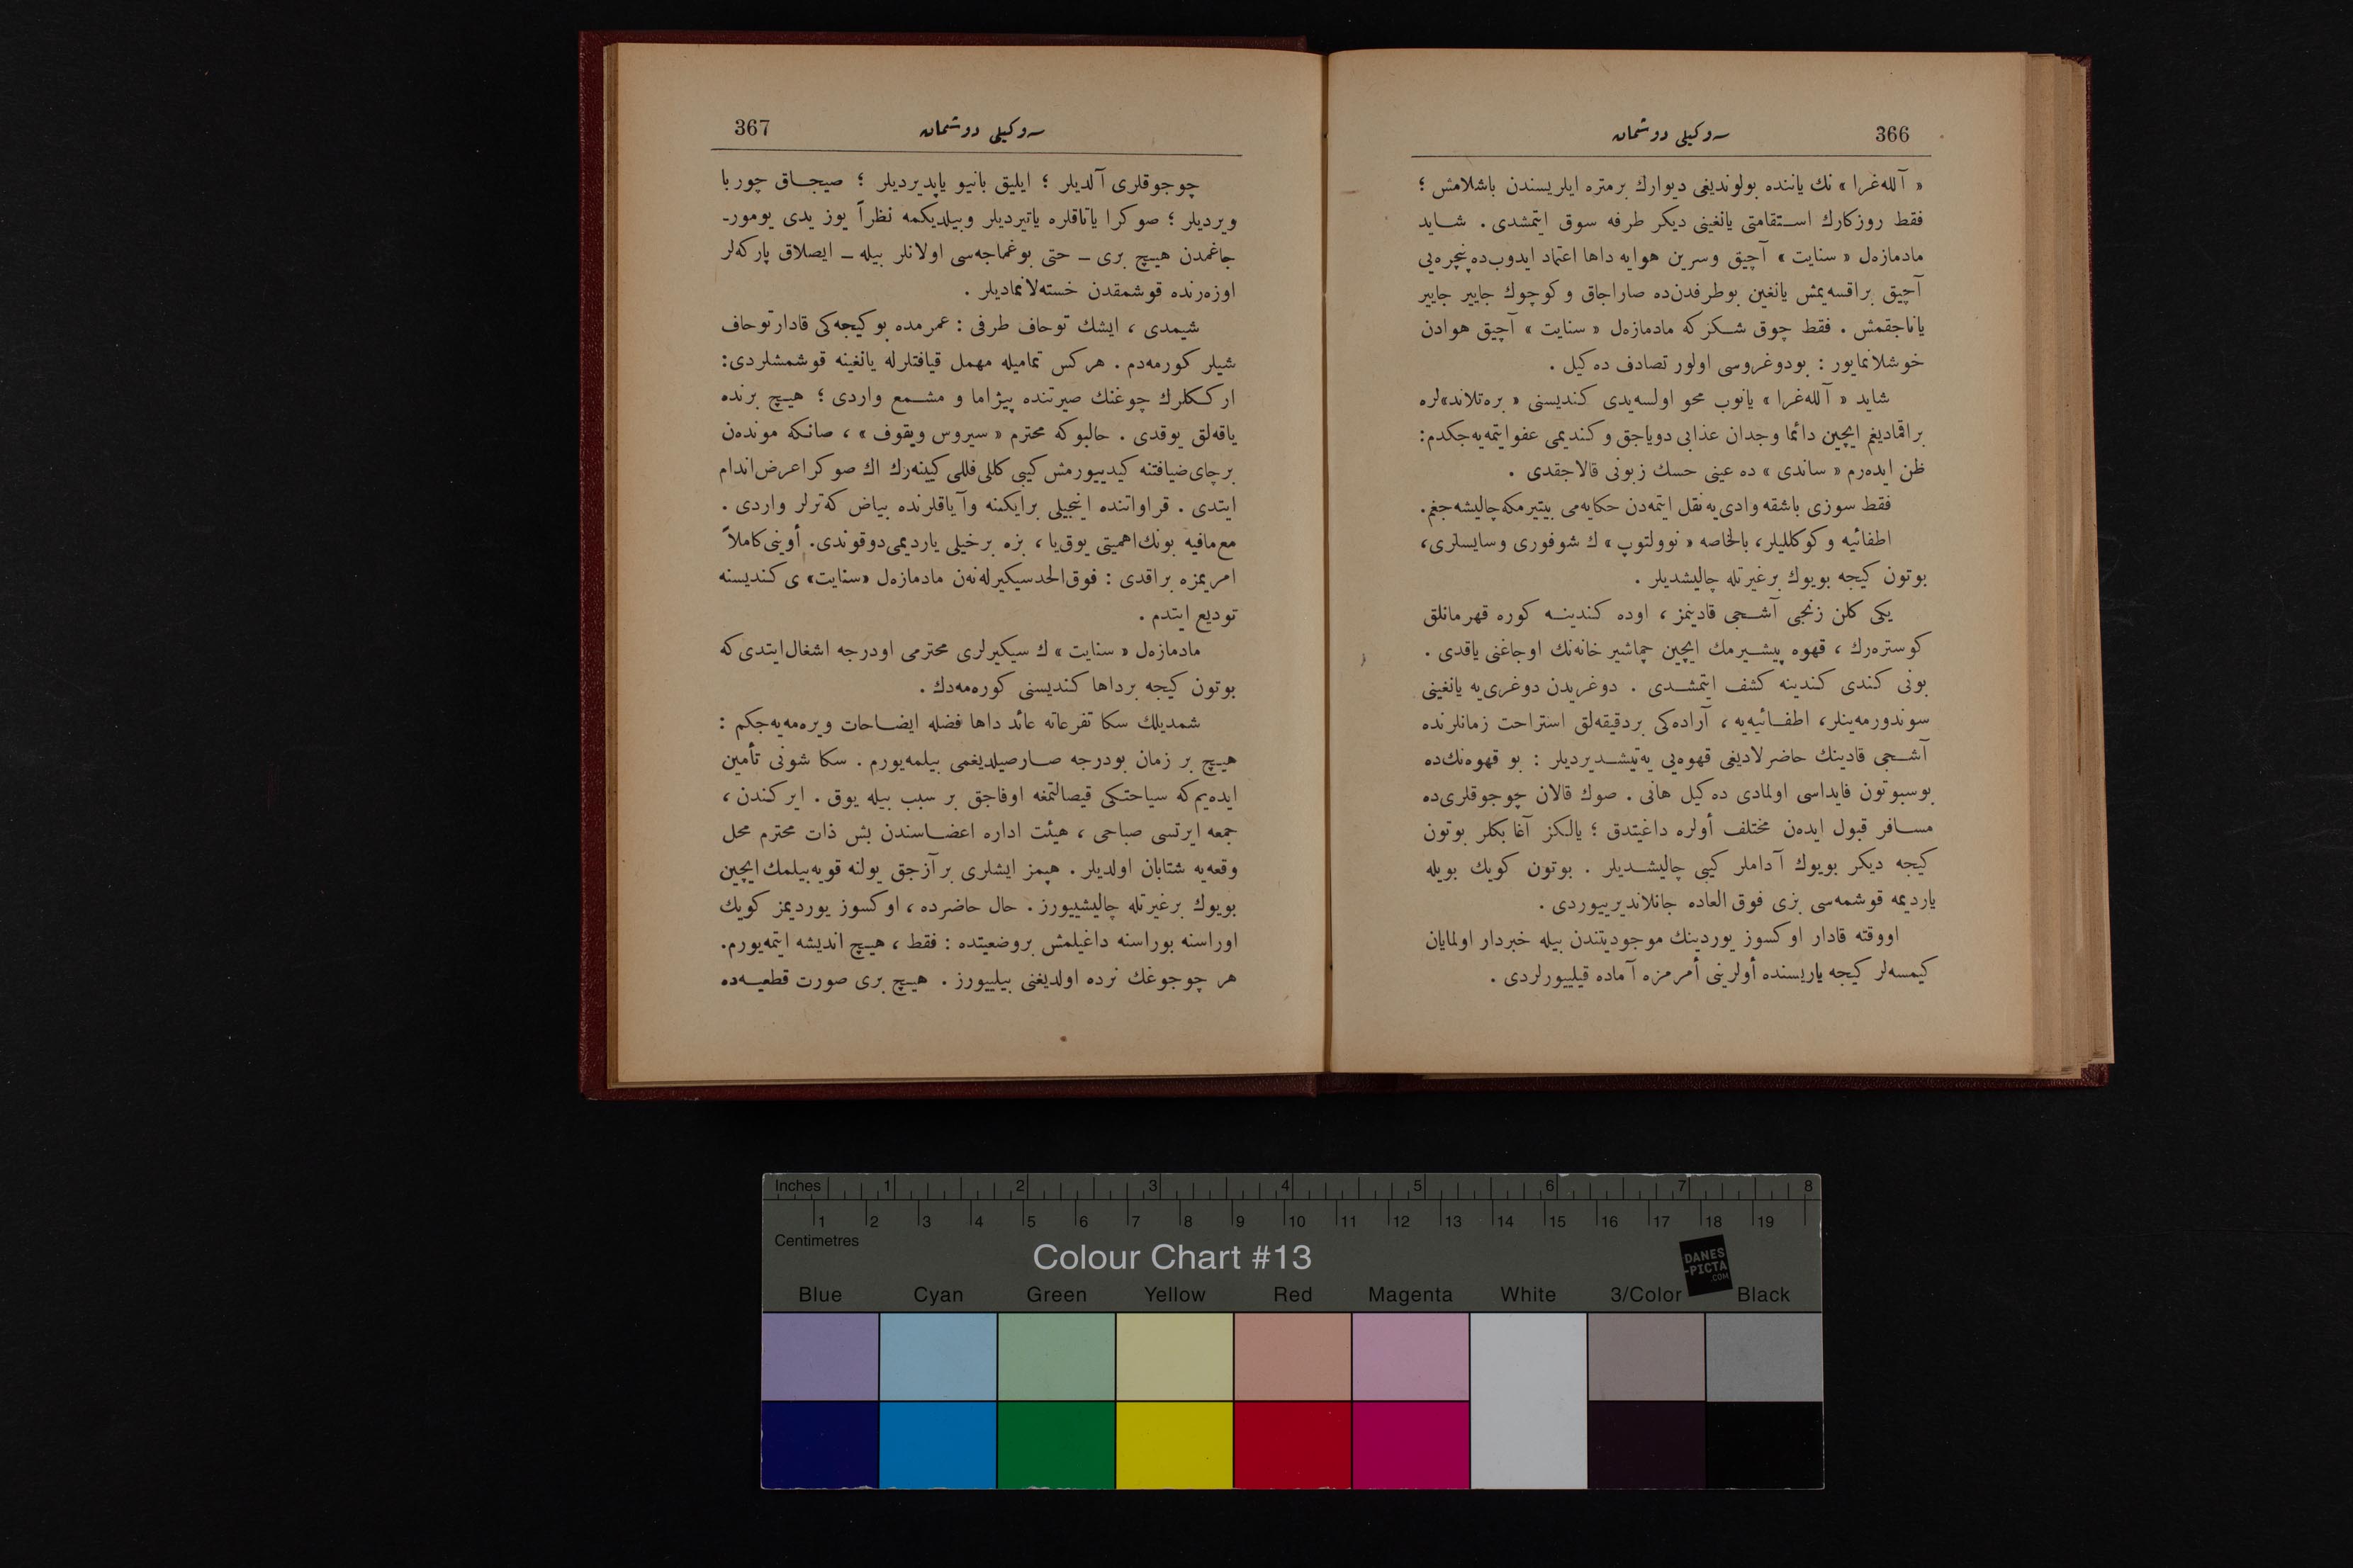 366
سه‌وكيلی دوشمان
« آلله‌غرا » نك یاننده بولوندیغی دیوارك برمتره ایلریسندن باشلامش ؛
فقط روزكارك استقامتی یانغینی دیكر طرفه سوق ایتمشدی . شاید
مادمازه‌ل « سنایت » آچیق وسرین هوایه داها اعتماد ایدوب‌ده پنچره‌یی
آچیق براقسه‌یمش یانغین بوطرفدن‌ده صاراجاق وكوچوك جاییر جاییر
یاناجقمش . فقط چوق شكر كه مادمازه‌ل « سنایت » آچیق هوادن
خوشلانمایور : بودوغروسی اولور تصادف ده‌كیل .
شاید « آلله‌غرا » یانوب محو اولسه‌یدی كندیسنی « بره‌تلاند»لره
براقمادیغم ایچین دائما وجدان عذابی دویاجق وكندیمی عفوایتمه‌یه‌جكدم :
ظن ایده‌رم « ساندی » ده عینی حسك زبونی قالاجقدی .
فقط سوزی باشقه وادی‌یه نقل ایتمه‌دن حكایه‌می بیتیرمكه چالیشه‌جغم .
اطفائیه وكوكللیلر، بالخاصه « نوولتوپ » ك شوفوری وسایسلری،
بوتون كیجه بویوك برغیرتله چالیشدیلر .
یكی كلن زنجی آشجی قادینمز ، اوده كندینه كوره قهرمانلق
كوستره‌رك ، قهوه پیشیرمك ایچین چماشیر خانه‌نك اوجاغنی یاقدی .
بونی كندی كندینه كشف ایتمشدی . دوغریدن دوغری‌یه یانغینی
سوندورمه‌ینلر، اطفائیه‌یه ، آراده‌كی بردقیقه‌لق استراحت زمانلرنده
آشجی قادینك حاضرلادیغی قهوه‌یی یه‌تیشدیردیلر : بو قهوه‌نك‌ده
بوسبوتون فایداسی اولمادی ده‌كیل هانی . صوك قالان چوجوقلری‌ده
مسافر قبول ایده‌ن مختلف أولره داغیتدق ؛ یالكز آغا بكلر بوتون
كیجه دیكر بویوك آداملر كیبی چالیشدیلر . بوتون كویك بویله
یاردیمه قوشمه‌سی بزی فوق العاده جانلاندیرییوردی .
اووقته قادار اوكسوز یوردینك موجودیتندن بیله خبردار اولمایان
كیمسه‌لر كیجه یاریسنده أولرینی أمرمزه آماده قیلییورلردی .
سه‌وكيلی دوشمان
367
چوجوقلری آلدیلر ؛ ایلیق بانیو یاپدیردیلر ؛ صیجاق چوربا
ویردیلر ؛ صوكرا یاتاقلره یاتیردیلر وبیلدیكمه نظراً یوز یدی یومور‌ـ
جاغمدن هیچ بری ــ حتی بوغماجه‌سی اولانلر بیله ــ ایصلاق پاركه‌لر
اوزه‌رنده قوشمقدن خسته‌لانمادیلر .
شیمدی ، ایشك توحاف طرفی : عمرمده بو كیجه‌كی قادار توحاف
شیلر كورمه‌دم . هركس تمامیله مهمل قیافتلرله یانغینه قوشمشلردی :
ارككلرك چوغنك صیرتنده پیژاما و مشمع واردی ؛ هیچ برنده
یاقه‌لق یوقدی . حالبوكه محترم « سیروس ویقوف » ، صانكه مونده‌ن
برچای ضیافتنه كیدییورمش كیبی كللی فللی كیینه‌رك اك صوكرا عرض اندام
ایتدی . قراواتنده اینجیلی برایكنه وآیاقلرنده بیاض كه‌ترلر واردی .
مع‌مافیه بونك اهمیتی یوق‌یا ، بزه برخیلی یاردیمی دوقوندی. أوینی كاملاً
امریمزه براقدی : فوق‌الحد سیكیرله‌نه‌ن مادمازه‌ل «سنایت» ی كندیسنه
تودیع ایتدم .
مادمازه‌ل « سنایت » ك سیكیرلری محترمی اودرجه اشغال ایتدی كه
بوتون كیجه برداها كندیسنی كوره‌مه‌دك .
شمدیلك سكا تفرعاته عائد داها فضله ایضاحات ویره‌مه‌یه‌جكم :
هیچ بر زمان بودرجه صارصیلدیغمی بیلمه‌یورم . سكا شونی تأمین
ایده‌یم كه سیاحتكی قیصالتمغه اوفاجق بر سبب بیله یوق . ایركندن ،
جمعه ایرتسی صباحی ، هیئت اداره اعضاسندن بش ذات محترم محل
وقعه‌یه شتابان اولدیلر . هپمز ایشلری برآزجق یولنه قویه‌بیلمك ایچین
بویوك برغیرتله چالیشییورز . حال حاضرده ، اوكسوز یوردیمز كویك
اوراسنه بوراسنه داغیلمش بروضعیتده : فقط ، هیچ اندیشه ایتمه‌یورم .
هر چوجوغك نرده اولدیغنی بیلییورز . هیچ بری صورت قطعیه‌ده
Inches 1 2 3 4 5 6 7 8
1 2 3 4 5 6 7 8 9 10 11 12 13 14 15 16 17 18 19
Centimetres
Colour Chart #13
DANES
-PICTA
.COM
Blue Cyan Green Yellow Red Magenta White 3/Color Black